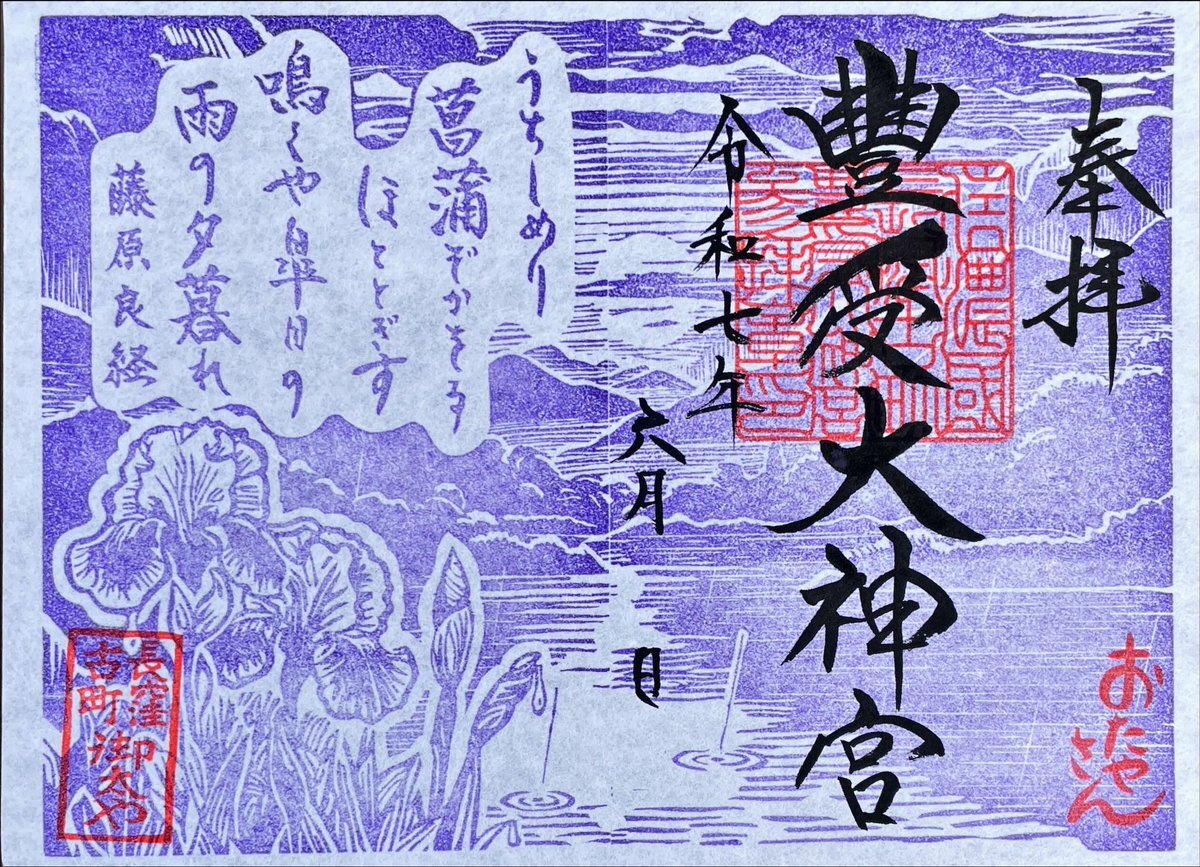 奉拝
豊受大神宮
令和七年
六月 日
おたやさん
うちしめり
菖蒲ぞかをる
ほととぎす
鳴くや皐月の
雨の夕暮れ
藤原良経
長窪
古町
御太や